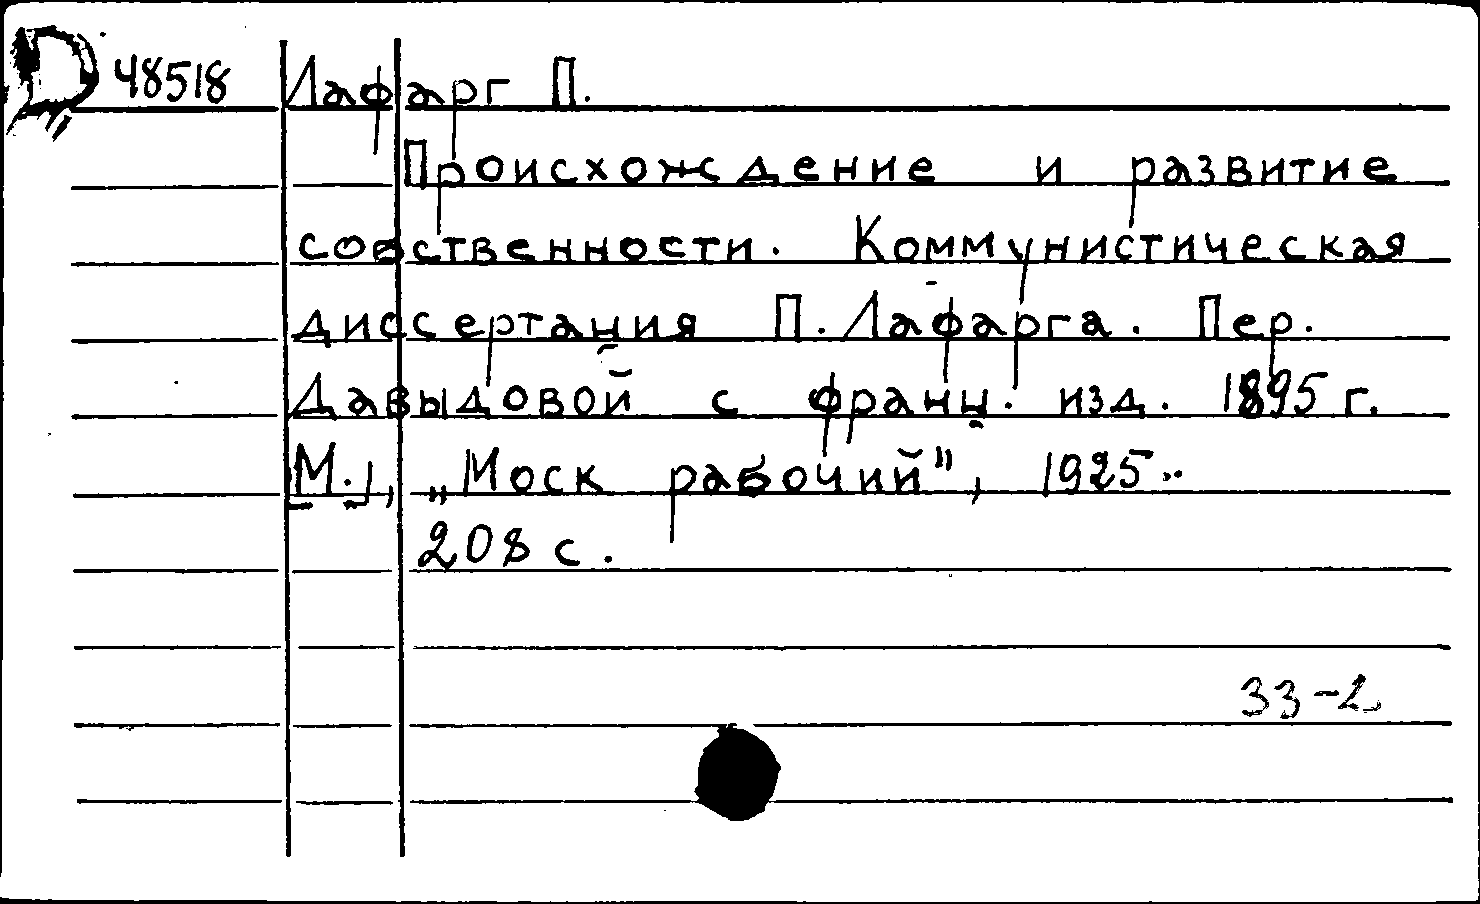 D 48518 Лафарг П.
Происхождение и развитие
собственности. Коммунистическая
диссертация П. Лафарга. Пер.
Давыдовой с франц. изд. 1895 г.
[М.], „Моск рабочий", 1925.
208 с.
33-2